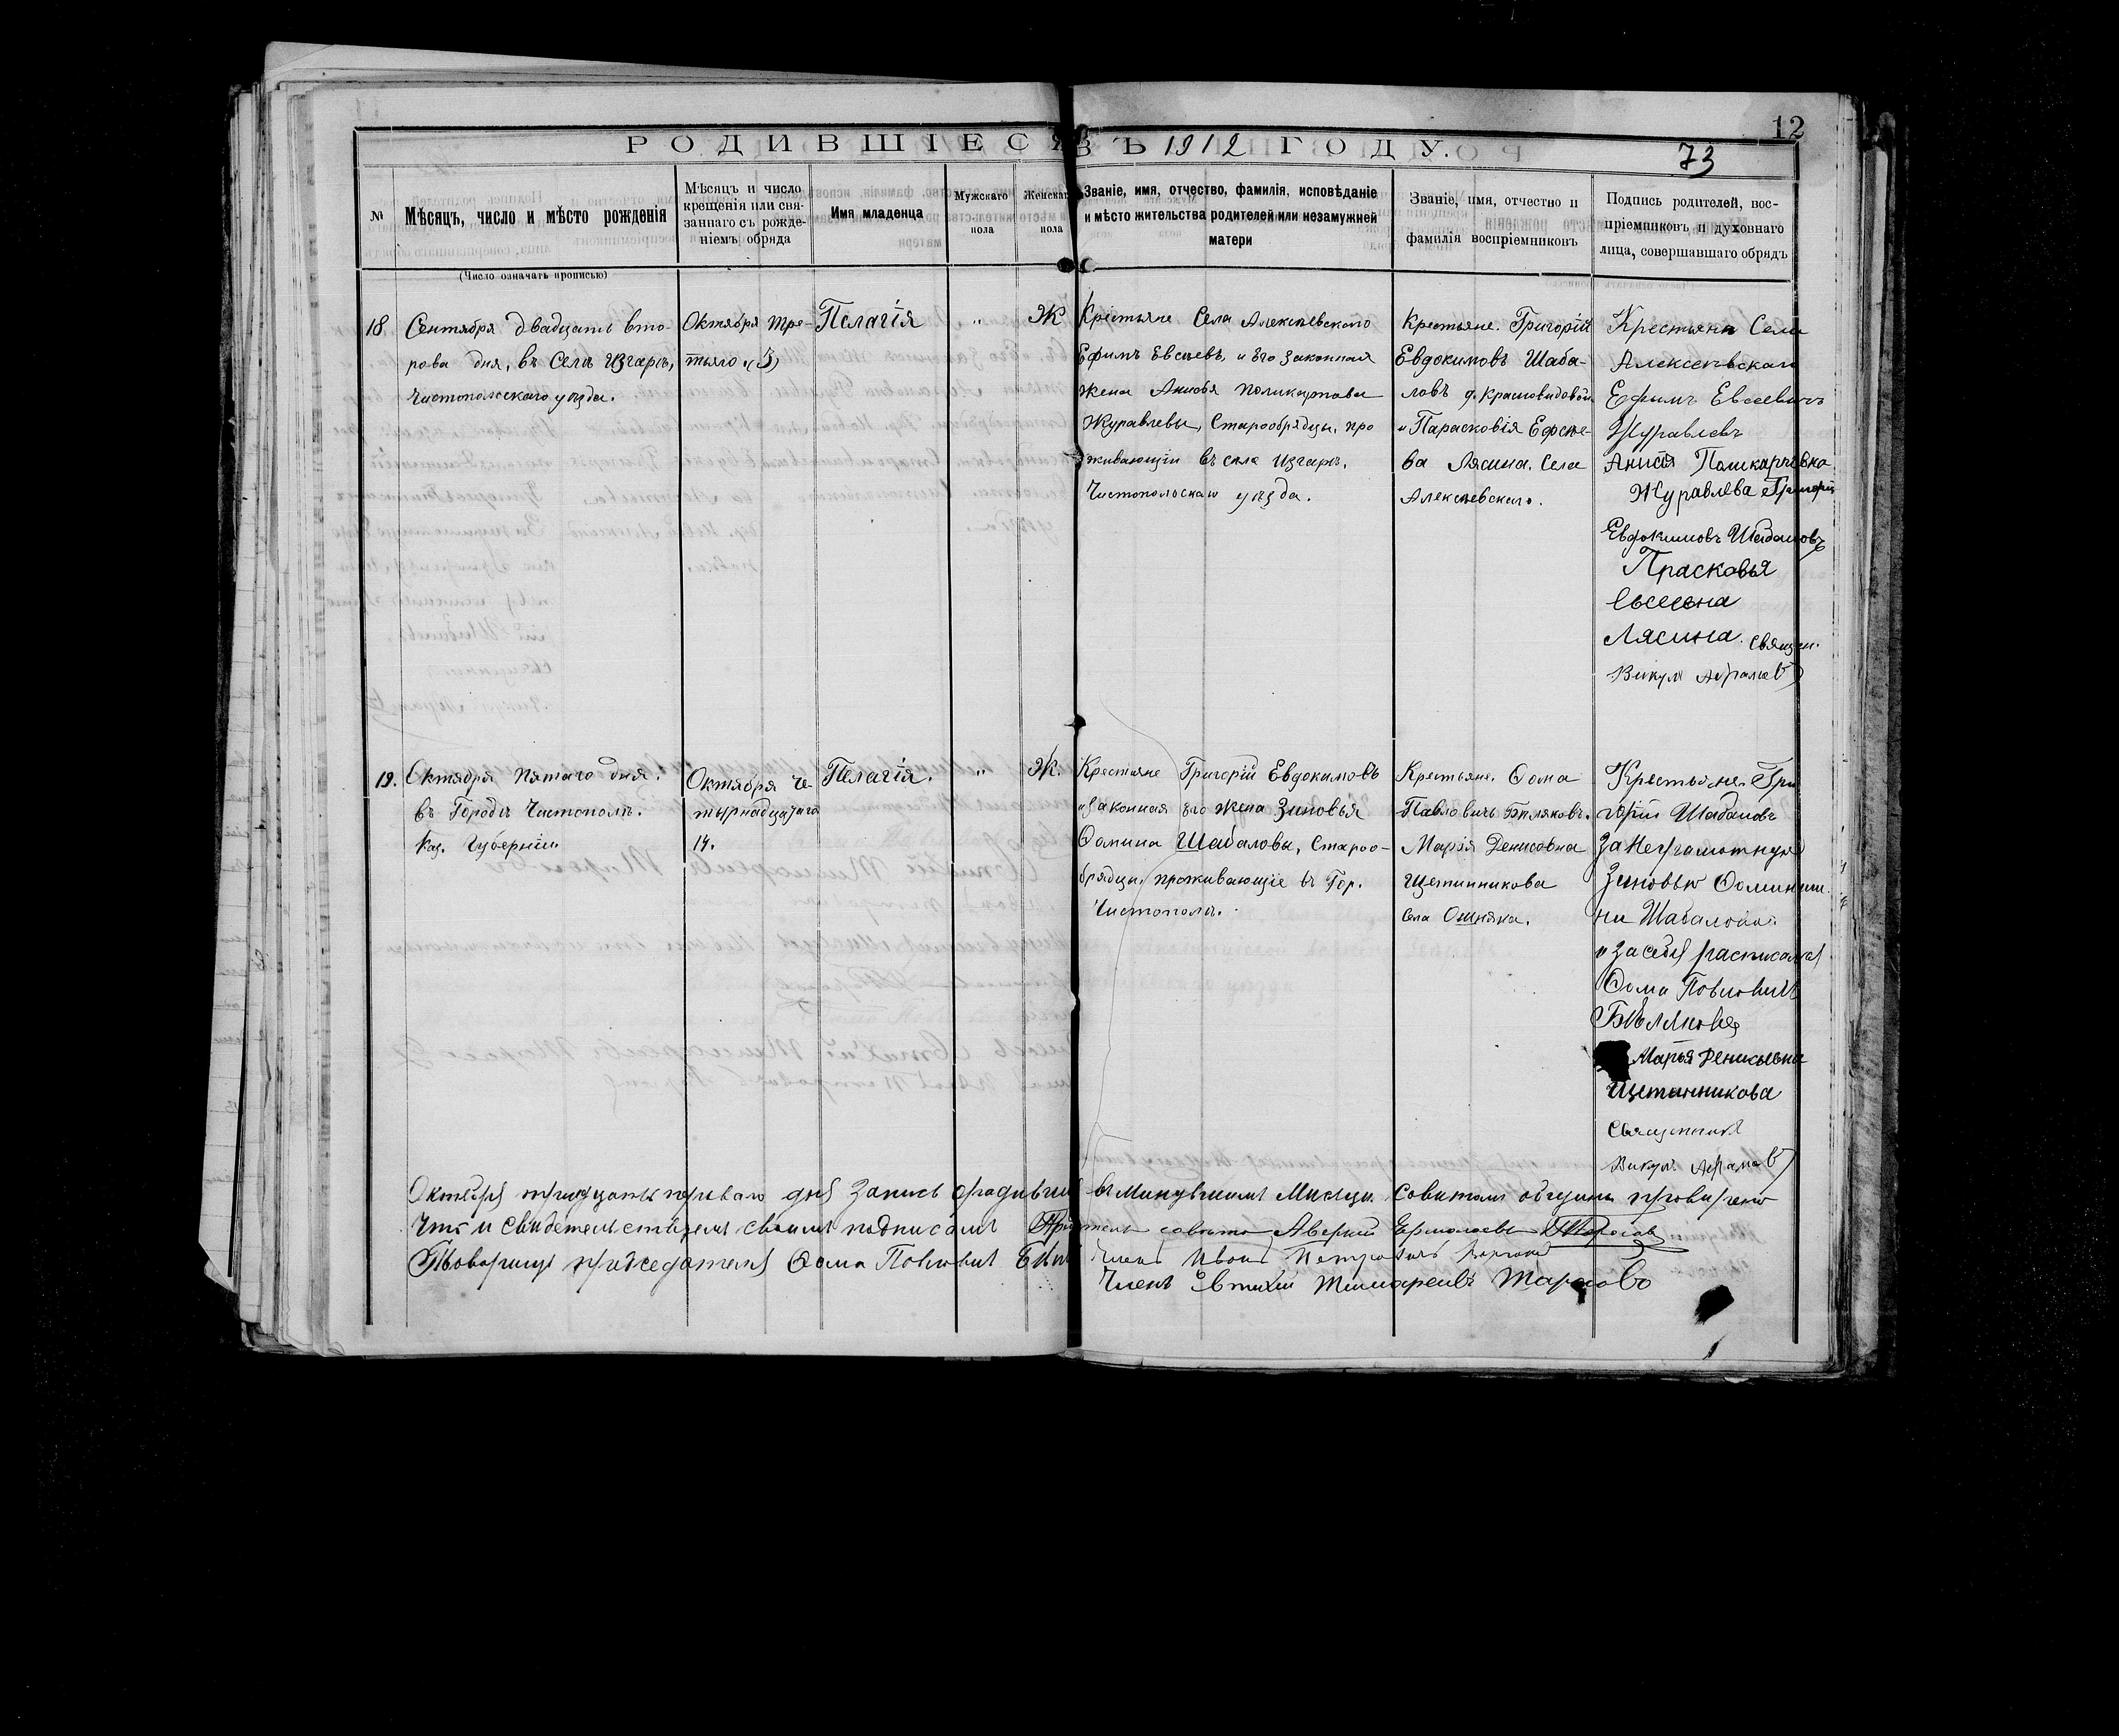 12
РОДИВШІЕСЯ ВЪ 1912 ГОДУ.
73
№
Мѣсяцъ, число и мѣсто рожденія
(Число означать прописью)
Мѣсяцъ и число
крещенія или свя-
заннаго съ рожде-
ніемъ обряда
Имя младенца
Мужскаго
пола
Женскаго
пола
Званіе, имя, отчество, фамилія, исповѣданіе
и мѣсто жительства родителей или незамужней
матери
Званіе, имя, отчество и
фамилія воспріемниковъ
Подпись родителей, вос-
пріемниковъ и духовнаго
лица, совершавшаго обрядъ
18.
Сентября двадцать вто-
рова дня, въ Селѣ Изгарѣ,
Чистопольскаго уѣзда.
Октября тре-
тьяго (3)
Пелагія
"
Ж
Крестьяне Села Алексѣевскаго
Ефимъ Евсѣевъ, и Его законная
жена Анисья Поликарпова
Журавлевы, Старообрядцы, про
живающіи въ села Изгарѣ,
Чистопольскаго уѣзда.
Крестьяне. Григорій
Евдокимовъ Шаба-
ловъ д. Красновидовой
и Парасковія Евсѣе-
ва Лясина. Села
Алексѣевскаго.
Крестьяне Села
Алексеевскаго
Ефимъ Евсеевичъ
Журавлевъ
Анисія Поликарповна
Журавлева Григорій
Евдокимовъ Шабаловъ
Прасковья
Евсеевна
Лясина. Священ.
Викул Абрамовъ
19.
Октября пятаго дня.
въ Городѣ Чистополѣ.
Каз. Губерніи.
Октября че-
тырнадцатаго
14.
Пелагія.
"
Ж.
Крестьяне Григорій Евдокимовъ
и законная его жена Зиновья
Ѳомина Шабаловы, Староо-
брядцы. проживающіе въ Гор.
Чистополѣ.
Крестьяне. Ѳома
Павловичъ Бѣляковъ.
Марія Денисовна
Щетинникова
Села Ошняка.
Крестьяне. Гри
горій Шабаловъ
За Неграмотную
Зиновью Ѳомини
ни Шабалову
и за себя расписался
Ѳома Повловичъ
Бѣляковъ
Марья Денисьевна
Щетинникова
Священникъ
Викул. Абрамовъ
Октября тридцать перваго дня Запись ородивших въ минувшемъ Месяце советомъ общины проверено
Что и свидетельствуемъ своими подписами совета Аверкий Ермолаевъ
Товарищъ председателя Ѳома Повловичъ Бѣля Членъ Ивонъ Петровичъ
Членъ Евтихій Тимофеевъ Тарасовъ